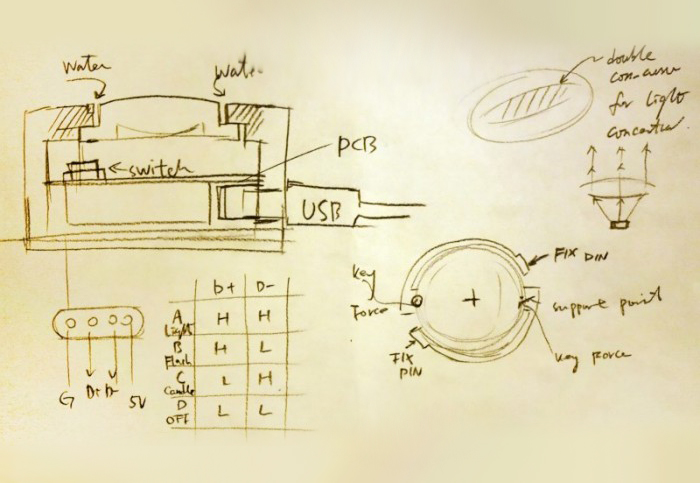 Water
Wate
double
for Light
PCB
switch
USB
FIX PIN
Key
Force
support point
key Force
FIX
PIN
D+ D-
A Light H H
B Flash H L
C Candle L H
D OFF L L
G D+ D- 5V